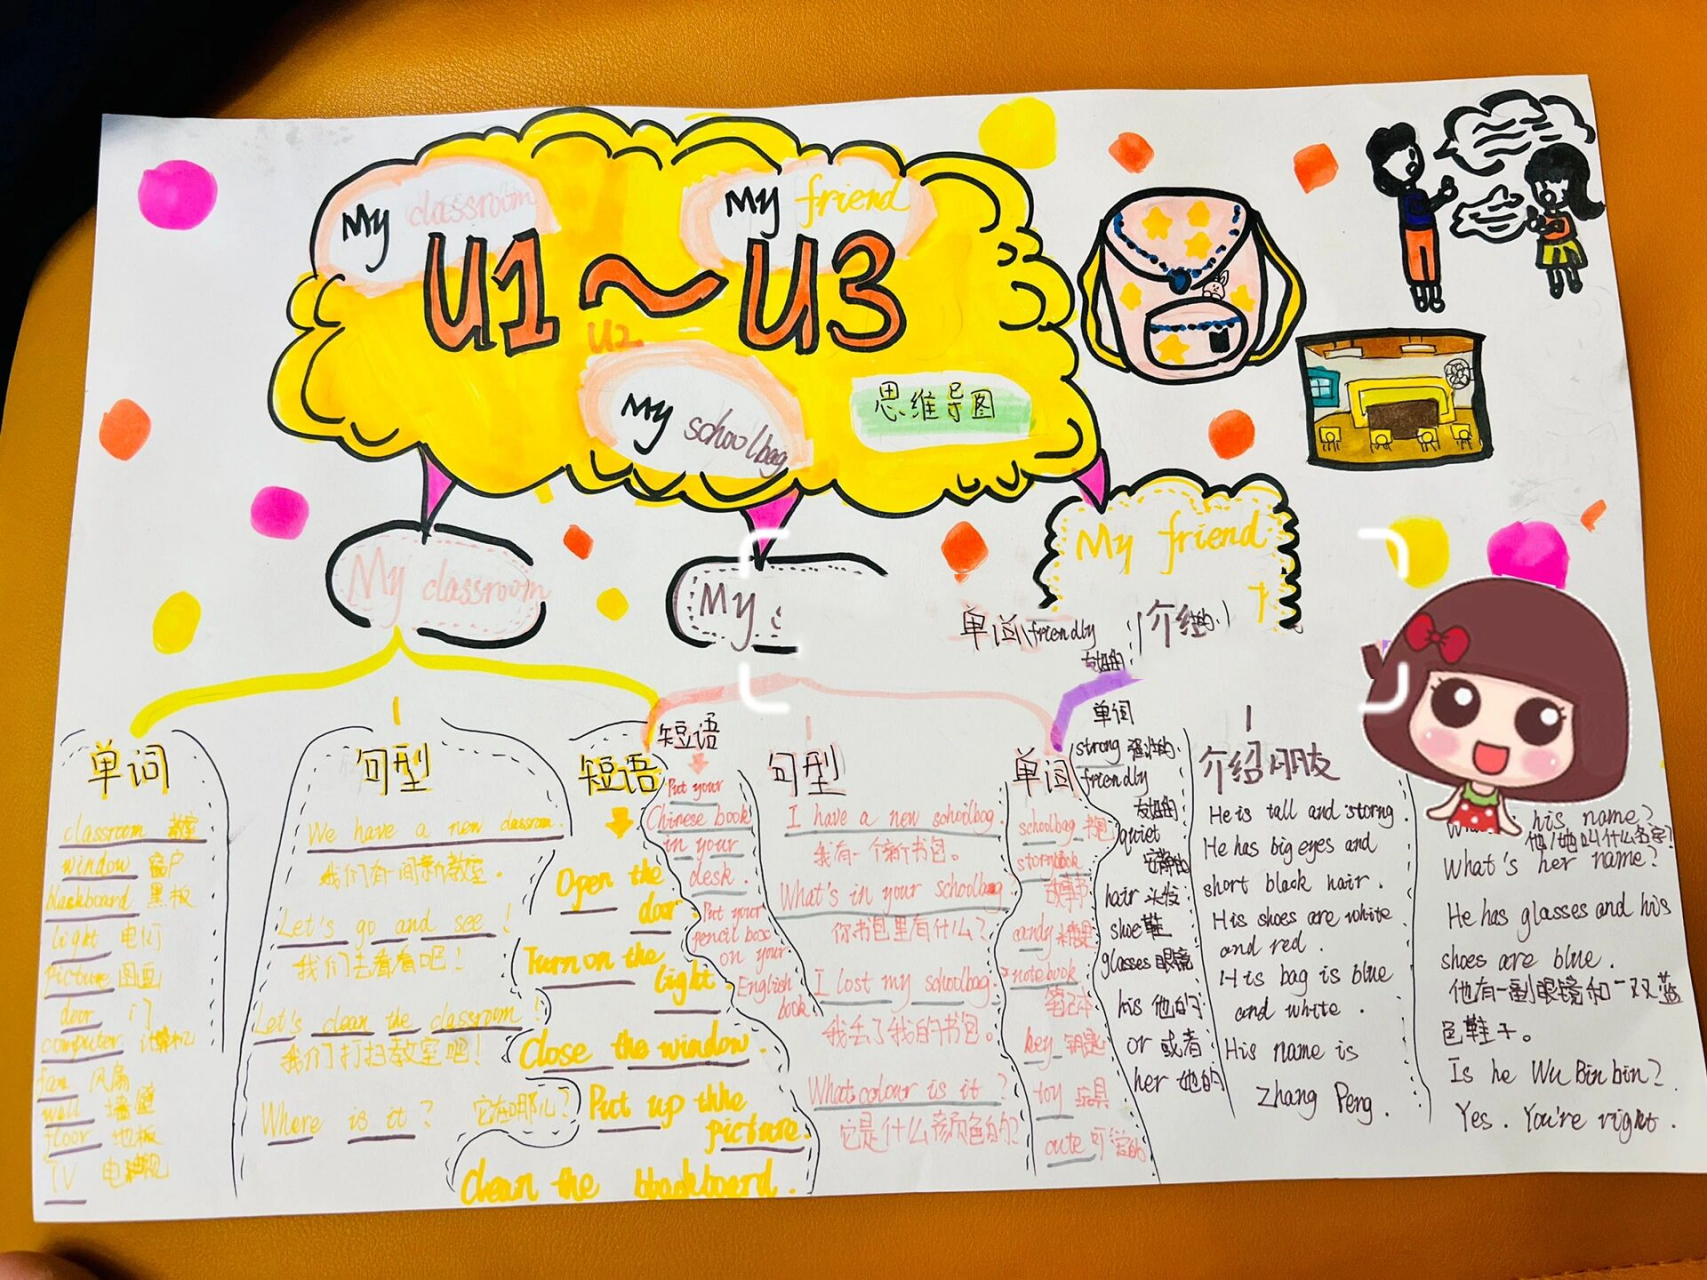 My classroom
My friend
U1~U3
U2
My schoolbag
思维导图
My classroom
My
My friend
单词
friendly
友好的
介绍
单词
classroom 教室
window 窗户
blackboard 黑板
light 电灯
picture 图画
door 门
computer 计算机
fan 风扇
wall 墙壁
floor 地板
TV 电视
句型
We have a new classroom.
我们有一间新教室。
Let's go and see!
我们去看看吧!
Let's clean the classroom!
我们打扫教室吧!
Where is it? 它在哪儿?
短语
Open the
door.
Turn on the
light.
Close the window.
Put up thhe
picture.
Clean the bblackboard.
短语
Put your
Chinese book
in your
desk.
Put your
pencil box
on your
English
book.
句型
I have a new schoolbag.
我有一个新书包。
What's in your schoolbag
你书包里有什么?
I lost my schoolbag.
我丢了我的书包。
What colour is it?
它是什么颜色的?
单词
schoolbag 书包
storybook
故事书
candy 糖果
notebook
笔记本
key 钥匙
toy 玩具
cute 可爱的
单词
strong 强壮的
friendly
友好的
quiet
安静的
hair 头发
shoe 鞋
glasses 眼镜
his 他的
or 或者
her 她的
介绍朋友
He is tall and storng.
He has big eyes and
short black hair.
His shoes are white
and red.
His bag is blue
and white.
His name is
Zhang Peng.
his name?
他/她叫什么名字?
What's her name?
He has glasses and his
shoes are blue.
他有一副眼镜和一双蓝
色鞋子。
Is he Wu Binbin?
Yes. You're right.